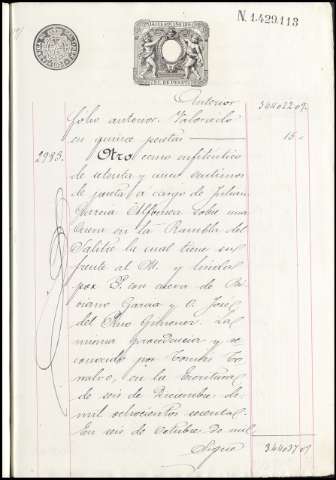 N. 1.429.113
Anterior 344022 09
folio anterior. Valorado
en quince pesetas 15 -
2985. Otro censo enfiteutico
de ochenta y cinco centimos
de peseta, a cargo de Julian
Garcia Alfonsea sobre una
Cueva en la Rambla del
Salitre la cual tiene su
frente al M. y linda
por P. con cueva de
Garcia y D. José
del Pino Gimener. La
misma procedencia y re-
conocido por Tomás Gon-
salvo, en la Escritura
de seis de Diciembre de
mil ochocientos sesenta.
En seis de Octubre de mil
Sigue 344037 09